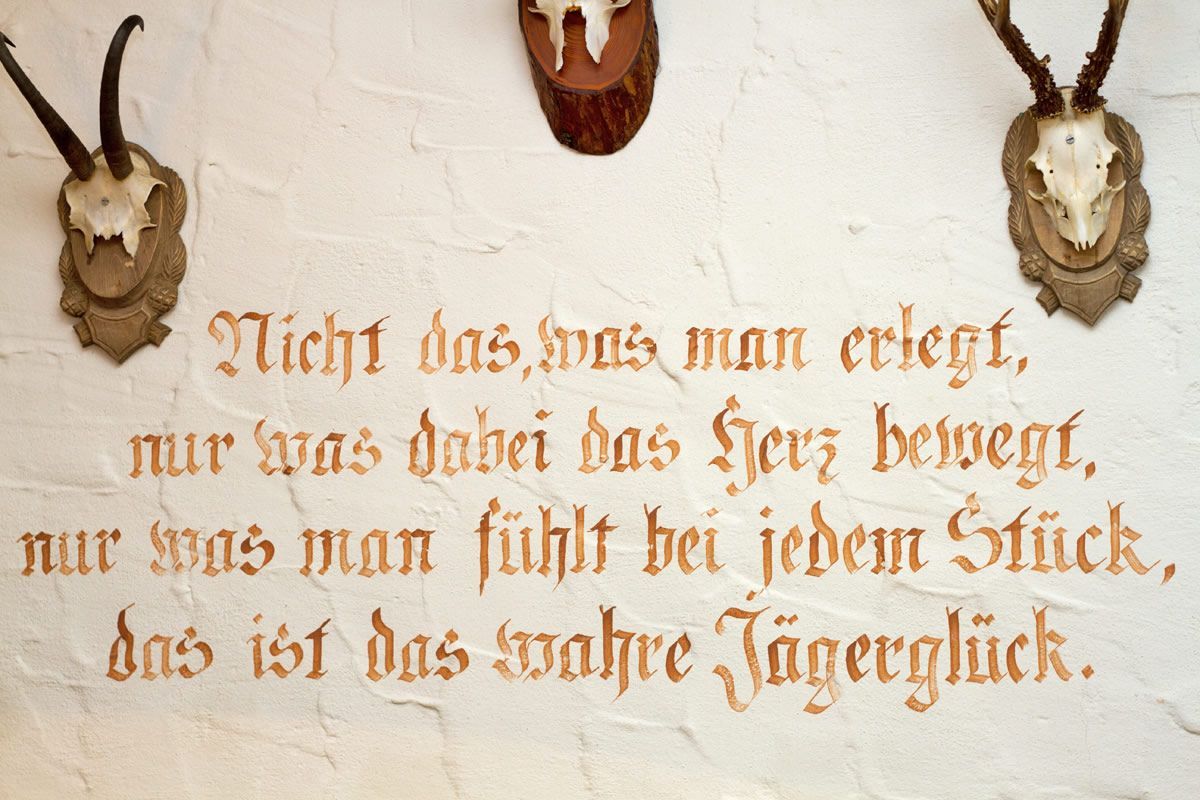 Nicht das, was man erlegt,
nur was dabei das Herz bewegt,
nur was man fühlt bei jedem Stück,
das ist das wahre Jägerglück.